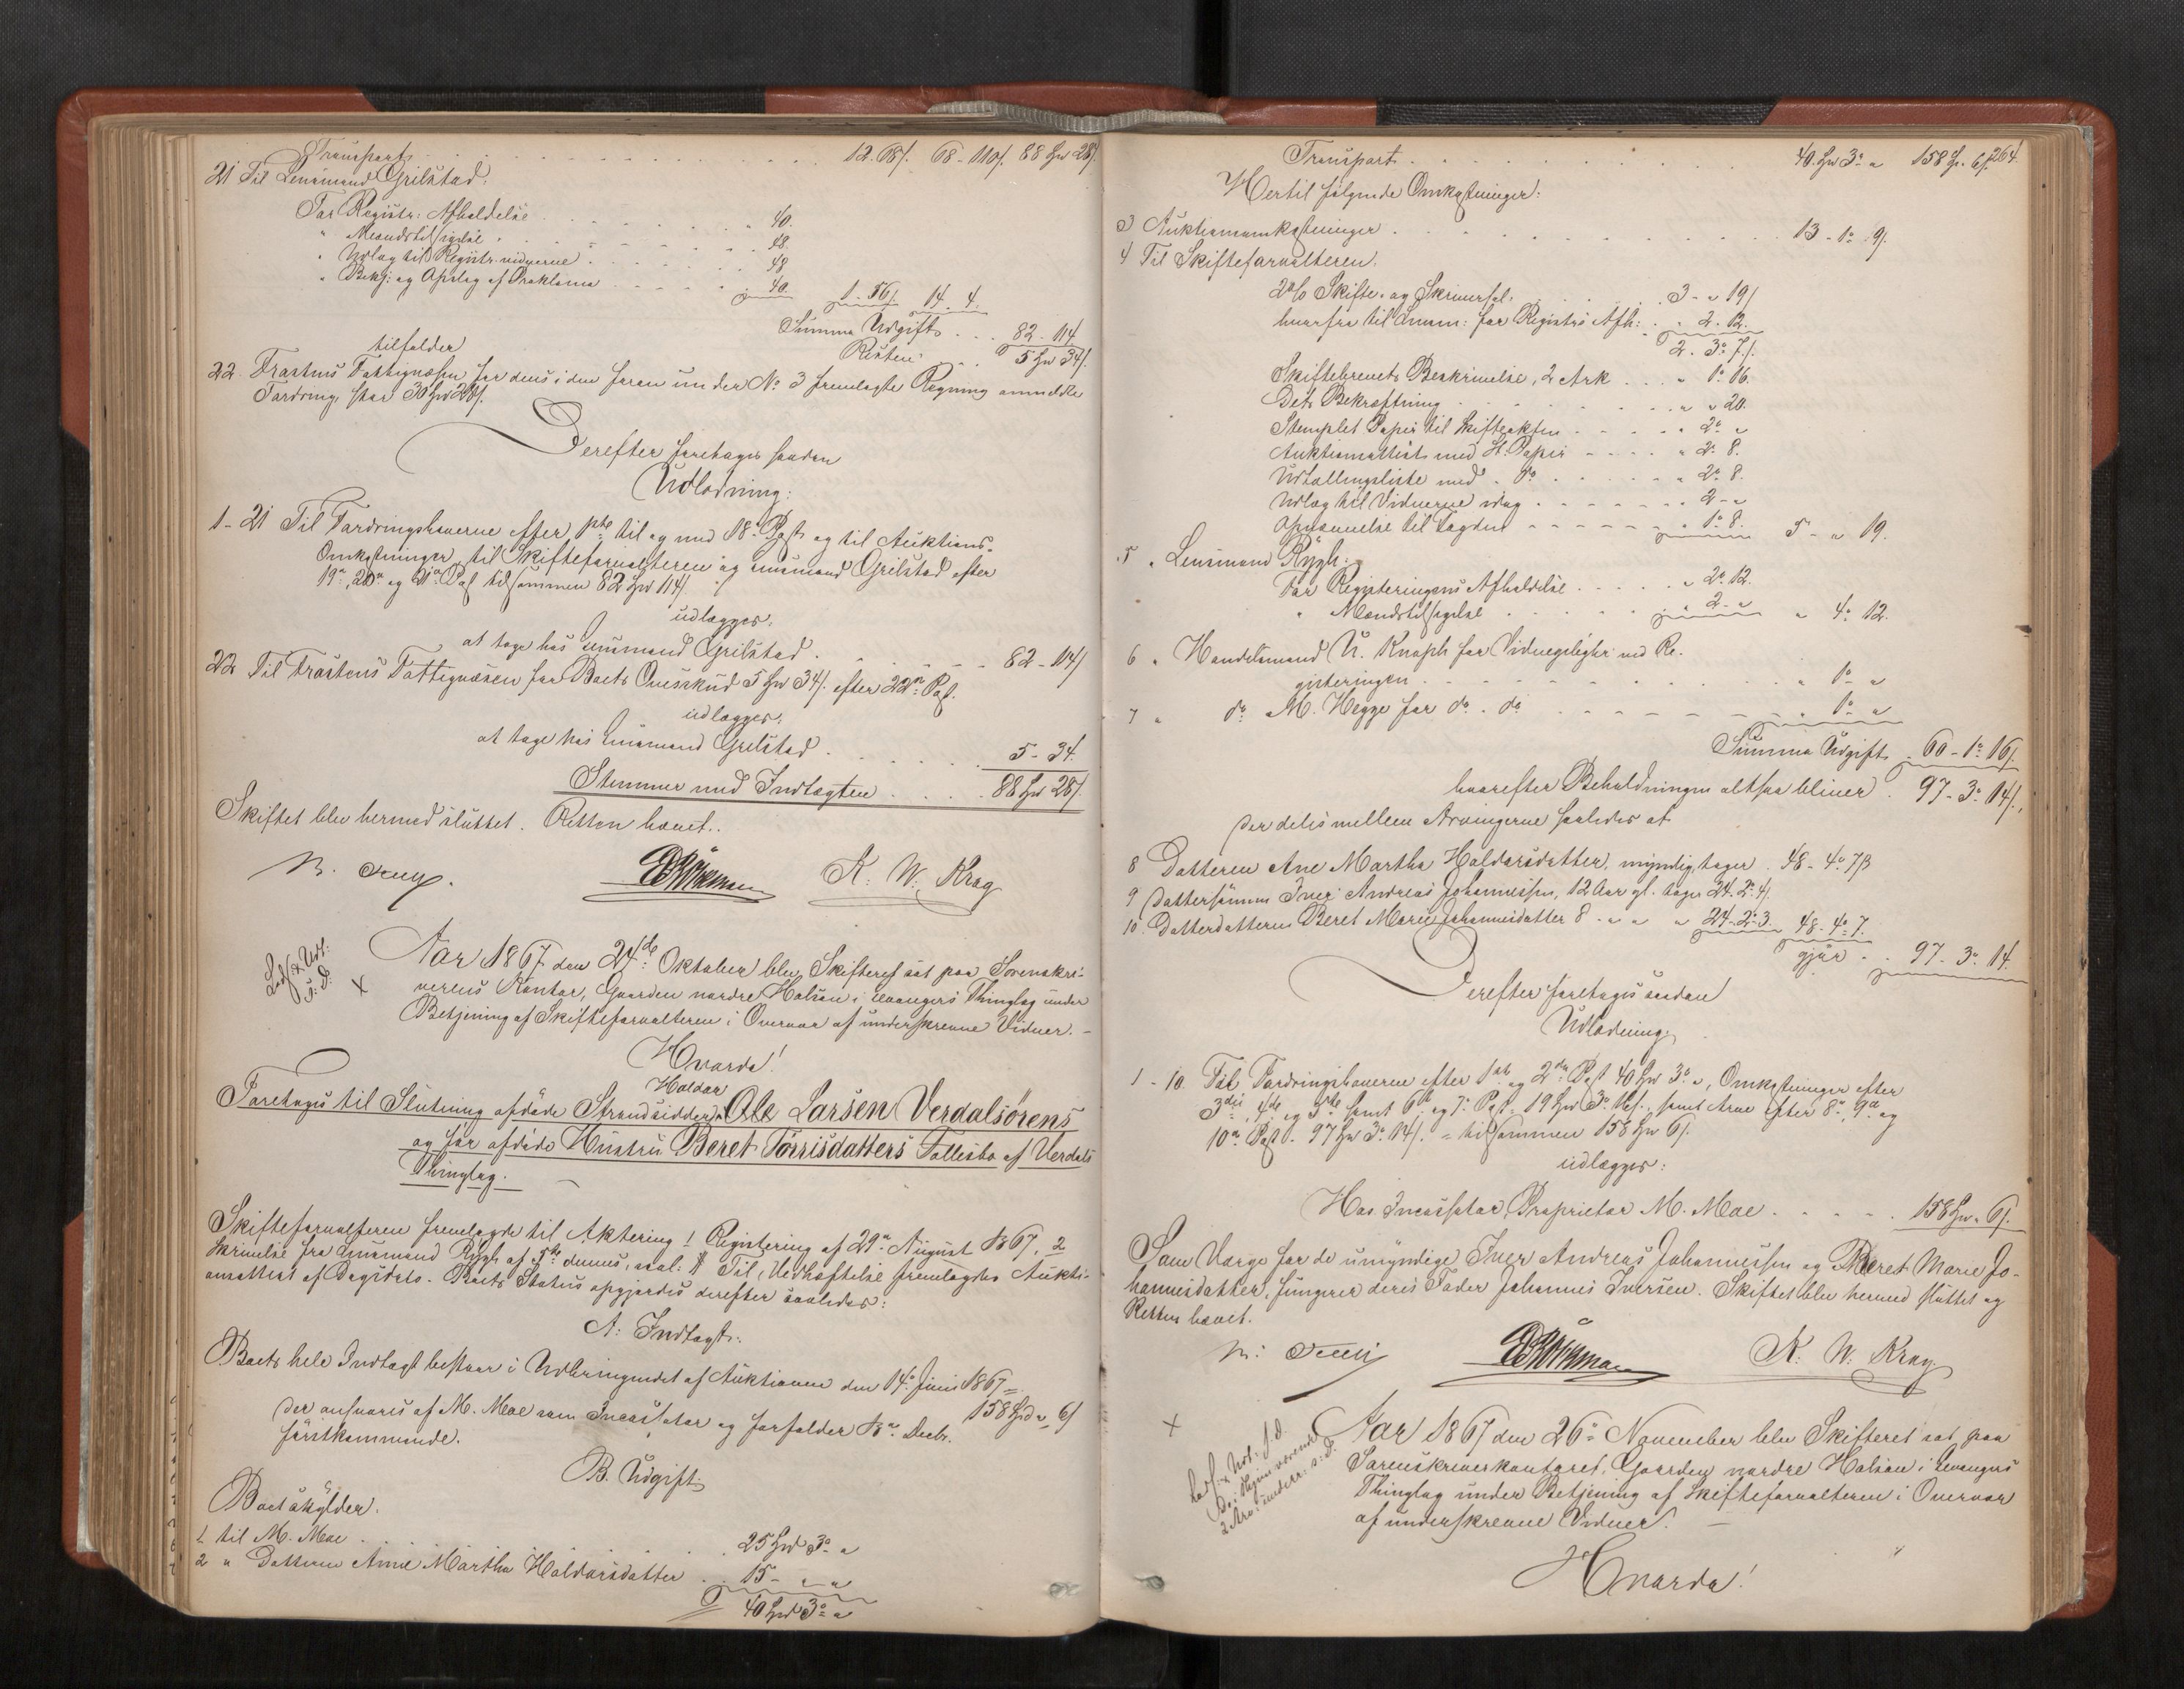 Transport . . . 12. 68/. 68 - 110/. 88 Spd 28/.
21 Til Lensmand Grilstad:
For Registr: Afholdelse . . . 40.
" Mændstilsigelse . . . 48.
" Udlæg til Registr. vidnerne . . . 48
" Bekj: og Opslag af Proklama . . . 40. 1 - 56/. 14 - 4.
Summa Udgift . . . 82 - 114
Resten . . . 5 Spd 34/.
tilfalder
22. Frostens Fattigvæsen for dens i den foran under No 3 fremlagte Regning anmeldte
Fordring, stor 30 Spd 28/.
Derefter foretages saadan
Udlodning:
1 - 21 Til Fordringshaverne efter 1ste til og med 18de Post og til Auktions-
Omkostninger, til Skifteforvalteren og Lensmand Grilstad efter
19de, 20de og 21de Post tilsammen 82 Spd 114/.
udlægges:
at tage hos Lensmand Grilstad . . . 82 - 114/
22 Til Frostens Fattigvæsen for Boets Overskud 5 Spd 34/. efter 22de Post.
udlægges:
at tage hos Lensmand Grilstad . . . 5 - 34.
Stemmer med Indtægten . . . 88 Spd 28/.
Skiftet blev hermed sluttet. Retten hævet.
K. W. Krag
Aar 1867 den 24de Oktober blev Skifteret sat paa Sorenskri-
verens Kontor, Gaarden nordre Halsan i Levangers Thinglag under
Betjening af Skifteforvalteren i Overvær af underskrevne Vidner. -
Hvorda!
Haldor
Foretages til Slutning afdøde Strandsidder Ole Larsen Verdalsørens
og før afdøde Hustru Beret Torrisdatters Fællesbo af Verdals
Thinglag.
Skifteforvalteren fremlagde til Aktering 1 Registering af 29de August 1867, 2
Skrivelse fra Lensmand Rygh af 5te dennes, Til Vedhæftelse fremlagdes Aukti-
onsattest af Dagsdato. Boets Status opgjordes derefter saaledes:
A. Indtægt:
Boets hele Indtægt bestaar i Udbringendet af Auktionen den 14de Juni 1867 =
158 Spd " 6/
der ansvares af M. Moe som Incassator og forfalder Decbr.
førstkommende.
B. Udgift
Boets Gjælder.
1 til M. Moe . . . 25 Spd 3o "
2 " Datteren Anne Martha Haldorsdatter . . . 15 - " "
40 Spd 3o "
Transport . . . 40 Spd 3o " 158 Sp. 6/. 264.
Hertil følgende Omkostninger:
3 Auktionsomkostninger . . . 13 - 1o 9/.
4 Til Skifteforvalteren.
2% Skifte- og Skriversal. . . . 3 - " 19/
hvorfra til Lensm: for Registrs Afh: . . 2. 12.
2. 3o 7/.
Skiftebrevets Beskrivelse, 2 Ark . . . " 1o 16.
Dets Bekræftning . . . " " 20.
Stemplet Papir til Skifteakten . . . " 2o "
Auktionsattest med St. Papir . . . " 2o 8.
Udtællingsliste med do . . . " 2o 8.
Udlæg til Vidnerne idag . . . " 2 - "
Opnævnelse til Tagden . . . " 1o 8. 5 - " 19.
5 " Lensmand Rygh:
For Registeringens Afholdelse . . . " 2o 12.
" Mændstilsigelse . . . " 2 - " " 4o 12.
6 " Handelsmand N. Knoph for Vidnepligter ved Re-
gisteringen . . . " 1o "
7 " do M. Hegge for do . do . . . " 1o "
Summa Udgift . 60 - 1o 16/.
hvorefter Beholdningen altsaa bliver . 97 - 3o 14/.,
der deles mellem Arvingerne saaledes at
8 Datteren Ane Martha Haldorsdatter, myndig, tager . 48 - 4o 7β
9 Dattersønnen Iver Andreas Johannessen, 12 Aar gl. tager 24. 2o 4/.
10. Datterdatteren Beret Marie Johannesdatter 8 " " " 24 - 2o 3. 48 - 4o 7.
gjør . . 97 - 3o 14.
Derefter foretages saadan
Udlodning:
1 - 10. Til Fordringshaverne efter 1ste og 2den Post 40 Spd 3o ", Omkostninger efter
3die, 4de og 5te samt 6te og 7de Post, 19 Spd 3o samt Arve efter 8de, 9de og
10de Post . 97 Spd 3o 14/. = tilsammen 158 Spd 6/.
udlægges:
Hos Incassator, Proprietær M. Moe . . . 158 Spd " 6/.
Som Værge for de umyndige Iver Andreas Johannessen og Beret Marie Jo-
hannesdatter, fungerer deres Fader Johannes Iversen. Skiftet blev hermed sluttet og
Retten hævet.
K. W. Krag
Aar 1867 den 26de November blev Skifteret sat paa
Sorenskriverkontoret, Gaarden nordre Halsan i Levangers
Thinglag under Betjening af Skifteforvalteren i Overvær
af underskrevne Vidner. -
Hvorda!